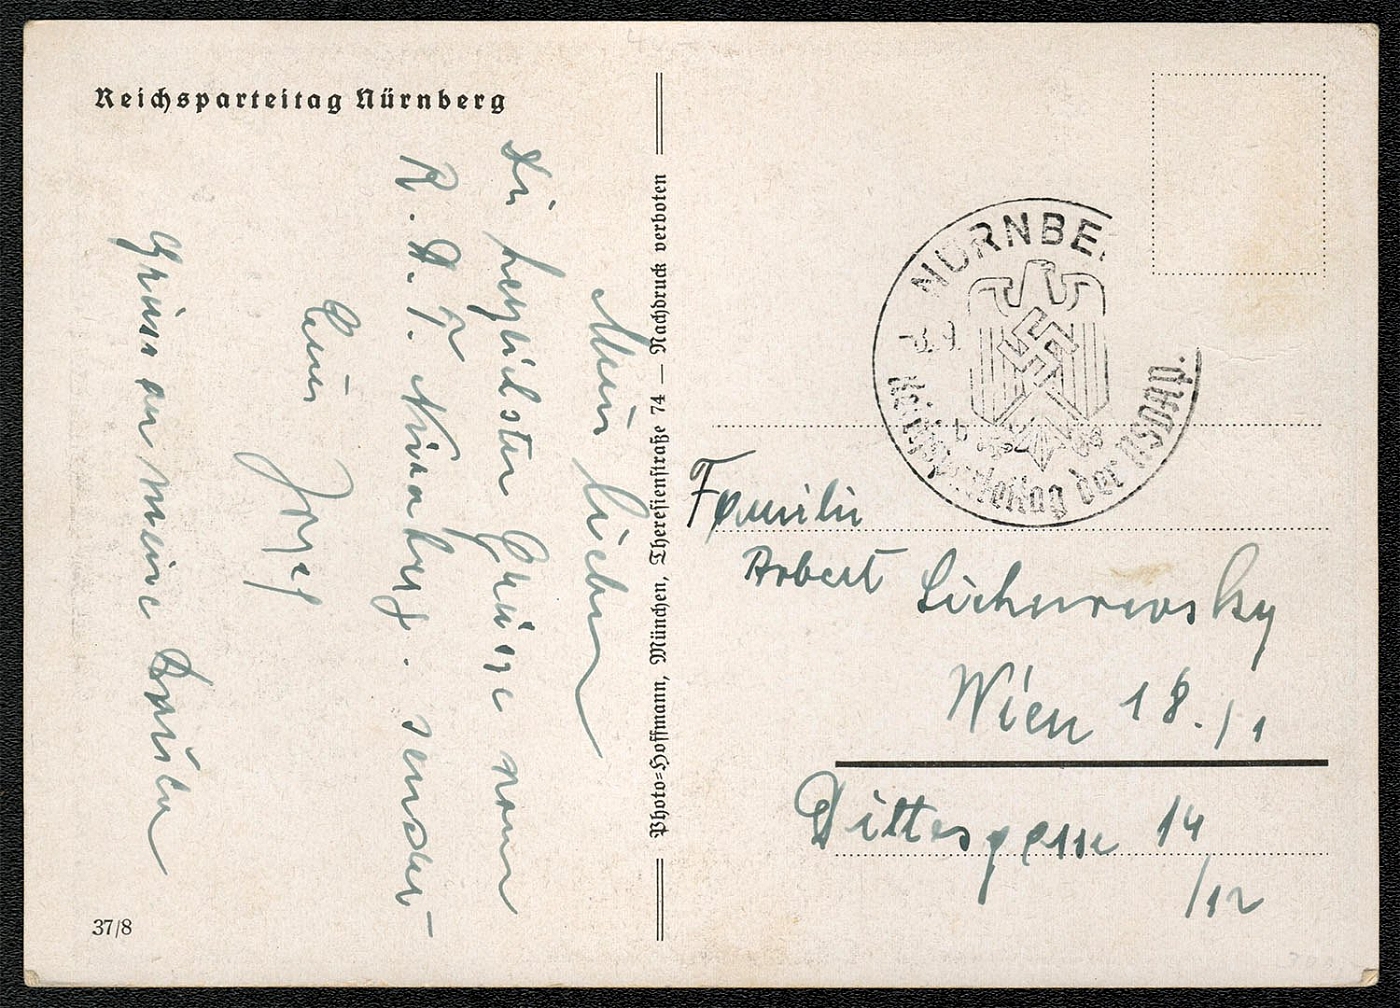 Reichsparteitag Nürnberg
Meine Lieben
Die herzlichsten Grüsse vom
R. P. T. Nürnberg. sendet
Euer
Josef
Gruss an meine
37/8
Photo-Hoffmann, München, Theresienstraße 74 — Nachdruck verboten
NÜRNBE
9.
Reichsparteitag der NSDAP.
Familie
Robert
Wien 18./1
Dittesgasse 14
/12